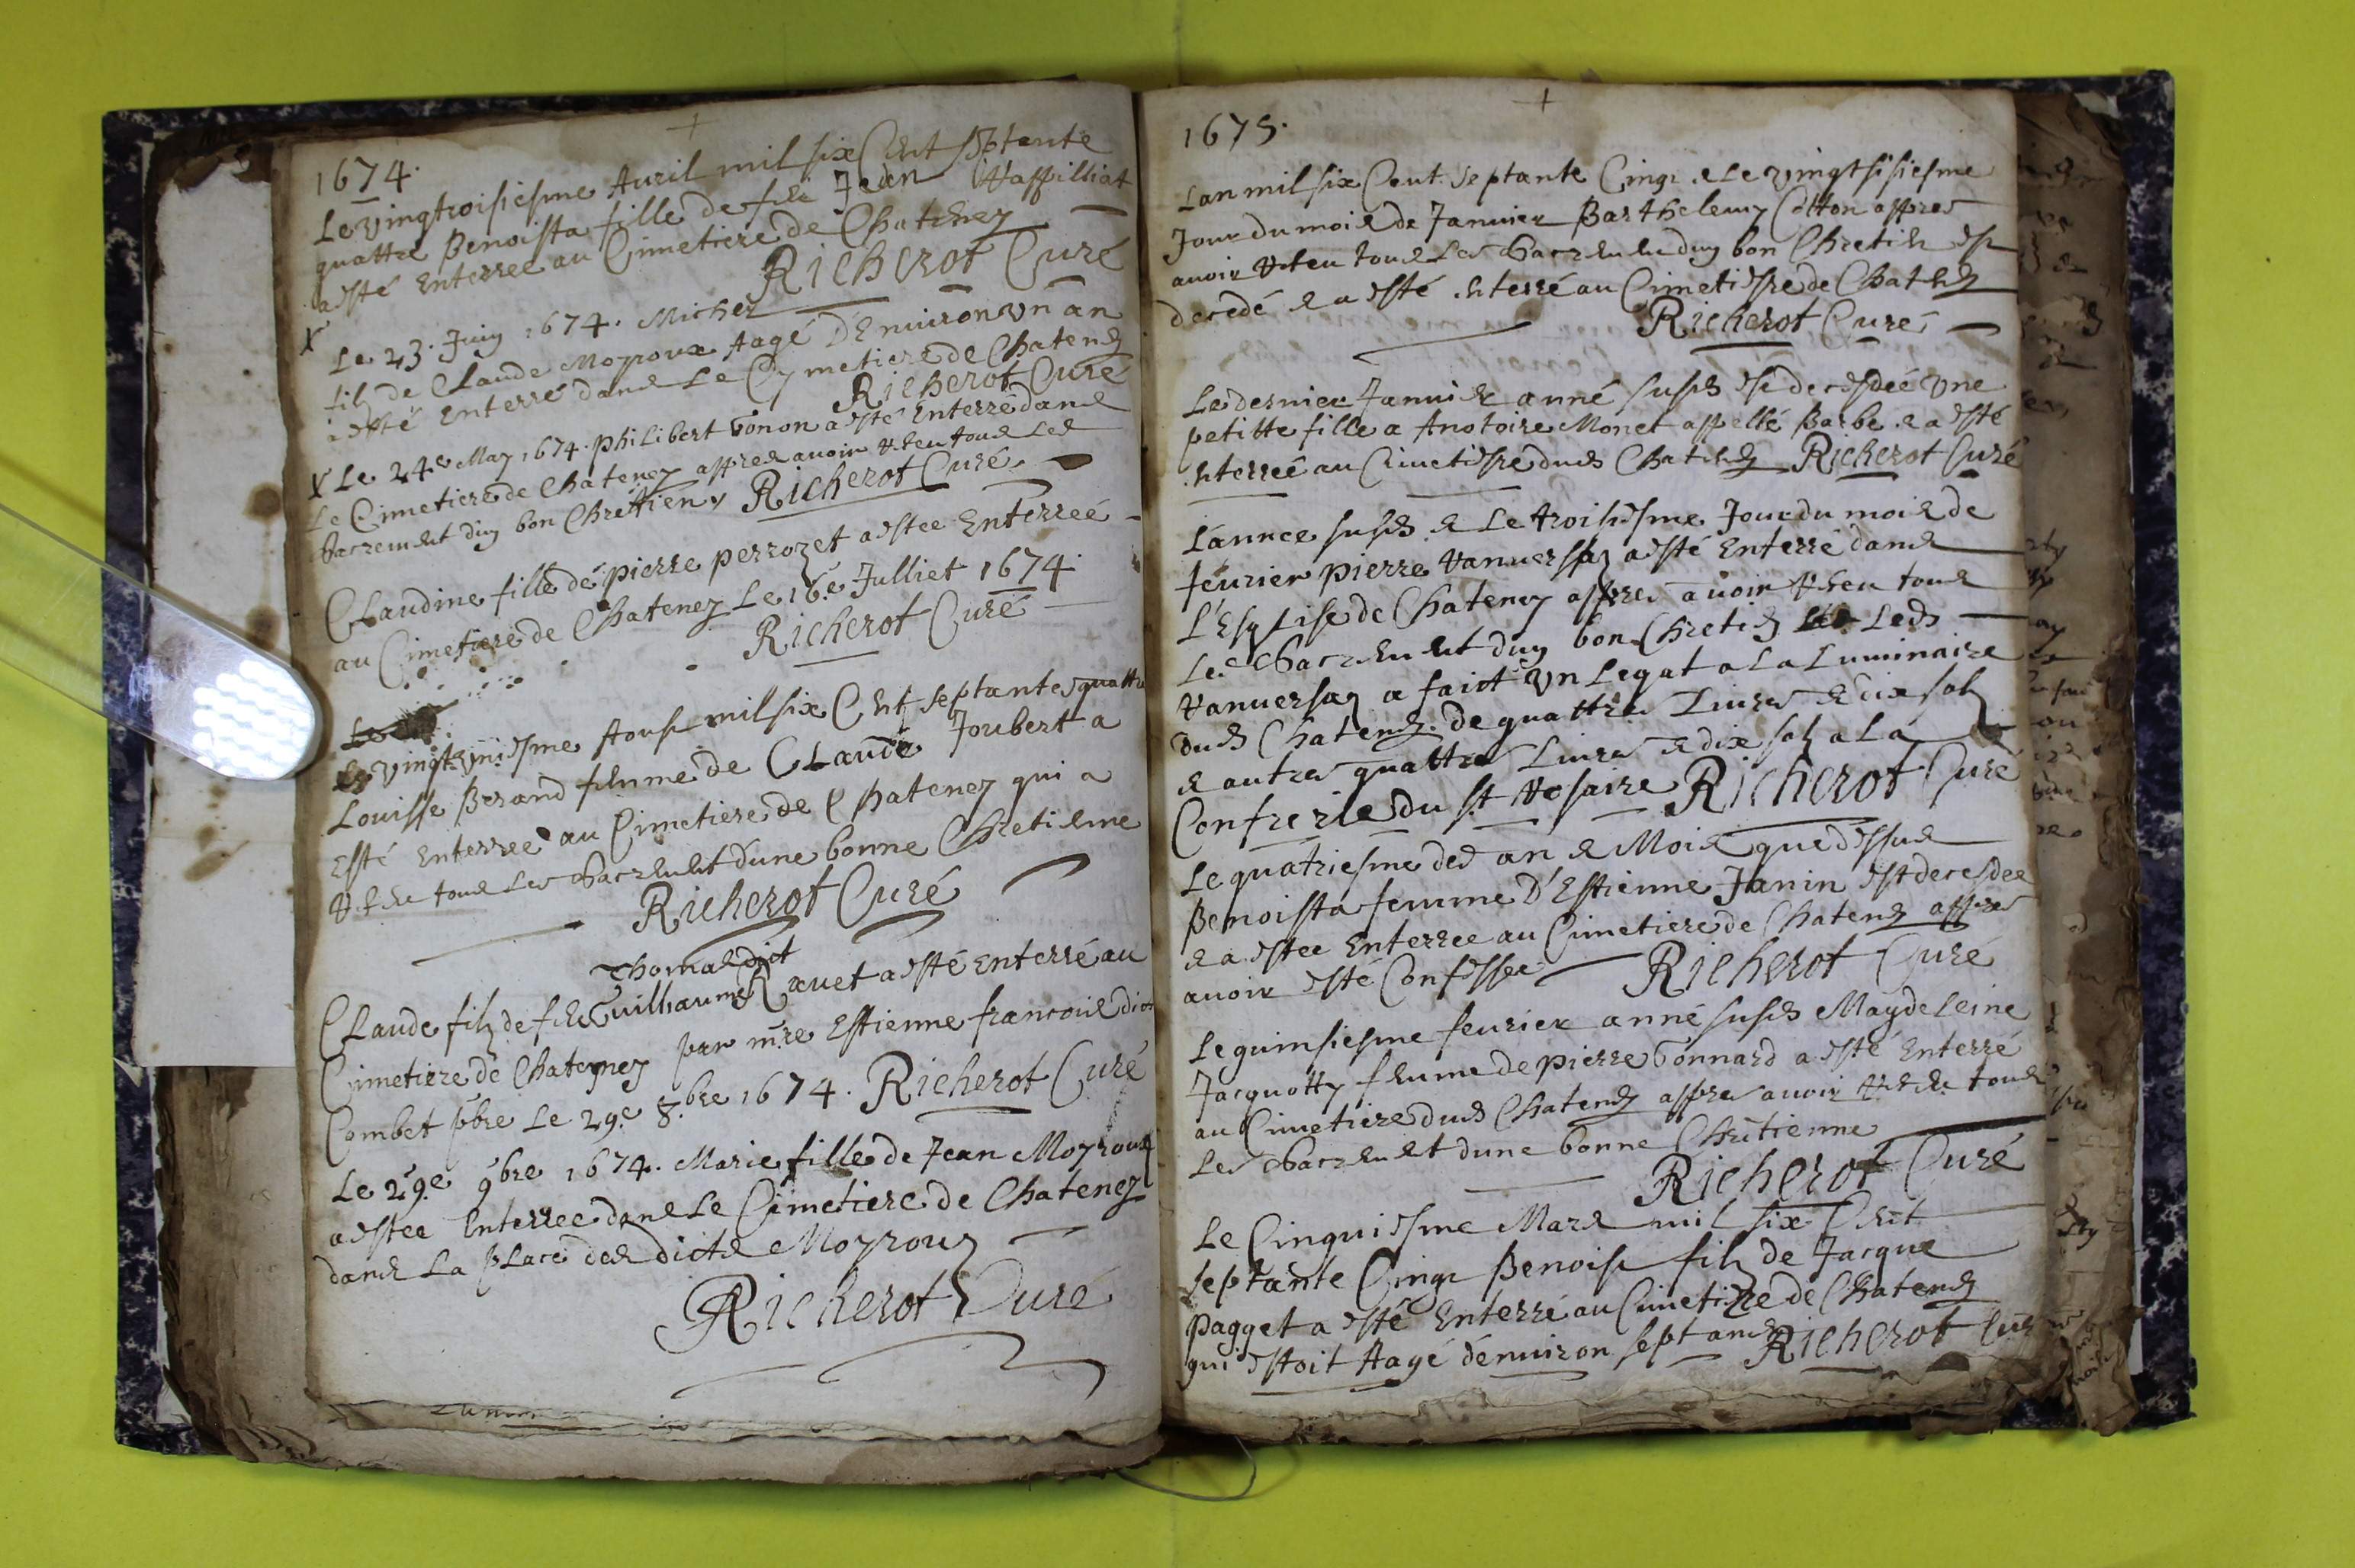 1674.
Le vingtroisiesme Auril mil six Cent septante
quattre Benoista fille de feu Jean Vaffilliat
a esté Enterree au Cimetiere de Chateney
Richerot Curé
X Le 23. Juin 1674. Michez
filz de Claude Moyroux Aagé D'Enuiron vn an
a esté Enterré dans Le Cymetiere de Chateney
Richerot Curé
X Le 24e May 1674. Philibert Bonon a esté Enterré dans
Le Cimetiere de Chateney appres auoir Receu tous Les
Sacrement d'un bon Chrettien Richerot Curé
Claudine fille de pierre perrozet a estee Enterreé
au Cimetiere de Chateney Le 16.e Julliet 1674.
Richerot Curé
Le vingt vniesme Aoust mil six Cent septante quattre
Louisse Berand femme de Claude Joubert a
Esté Enterree au Cimetiere de Chateney qui a
Receu tous Les Sacrement d'une bonne Chretienne
Richerot Curé
Thomas dict
Claude filz de feu Guilhaume Rauet a esté Enterré au
Cimetiere de Chateyney par mre Estienne francois dict
Combet pbre Le 29.e 8.bre 1674. Richerot Curé
Le 29.e 9bre 1674. Marie fille de Jean Moyroux
a estee Enterree dans Le Cimetiere de Chateney
dans La place des dicts Moyroux
Richerot Curé
1675.
Lan mil six Cent Septante Cinq & Le vingtsisiesme
Jour du mois de Januier Barthelemy Cotton appres
auoir Receu tous Les Sacrement dun bon Chretien est
decedé & a esté Enterré au Cimetiere de Chateney
Richerot Curé
Le dernier Januier anné susd est decesdeé vne
petitte fille a Anotoire Monet appellé Barbe & a esté
Enterreé au Cimetiere dud Chateney Richerot Curé
L'annee susd & Le troisiesme Jour du mois de
feurier pierre Vanuersay a esté Enterré dans
L'Esglise de Chateney appres auoir Receu tous
Les Sacrement dun bon Chretien Led
Vanuersay a faict vn Legat a La Luminaire
dud Chateney de quattre Liures & dix solz
& autres quattre Liures & dix solz a La
Confrerie du St Rosaire Richerot Curé
Le quatriesme des an & Mois que dessus
Benoista femme D'Estienne Janin est decesdee
& a estee Enterree au Cimetiere de Chateney appres
auoir esté Confessee Richerot Curé
Le quinsiesme feurier anné susd Maydeleine
Jacquotty femme de pierre Bonnard a esté Enterré
au Cimetiere dud Chateney appres auoir Receu tous
Les Sacrement dune bonne Chretienne
Richerot Curé
Le Cinquiesme Mars mil six Cent
septante Cinq Benoist filz de Jacque
Pagget a esté Enterré au Cimetiere de Chateney
qui estoit Aagé denuiron sept ans Richerot Curé